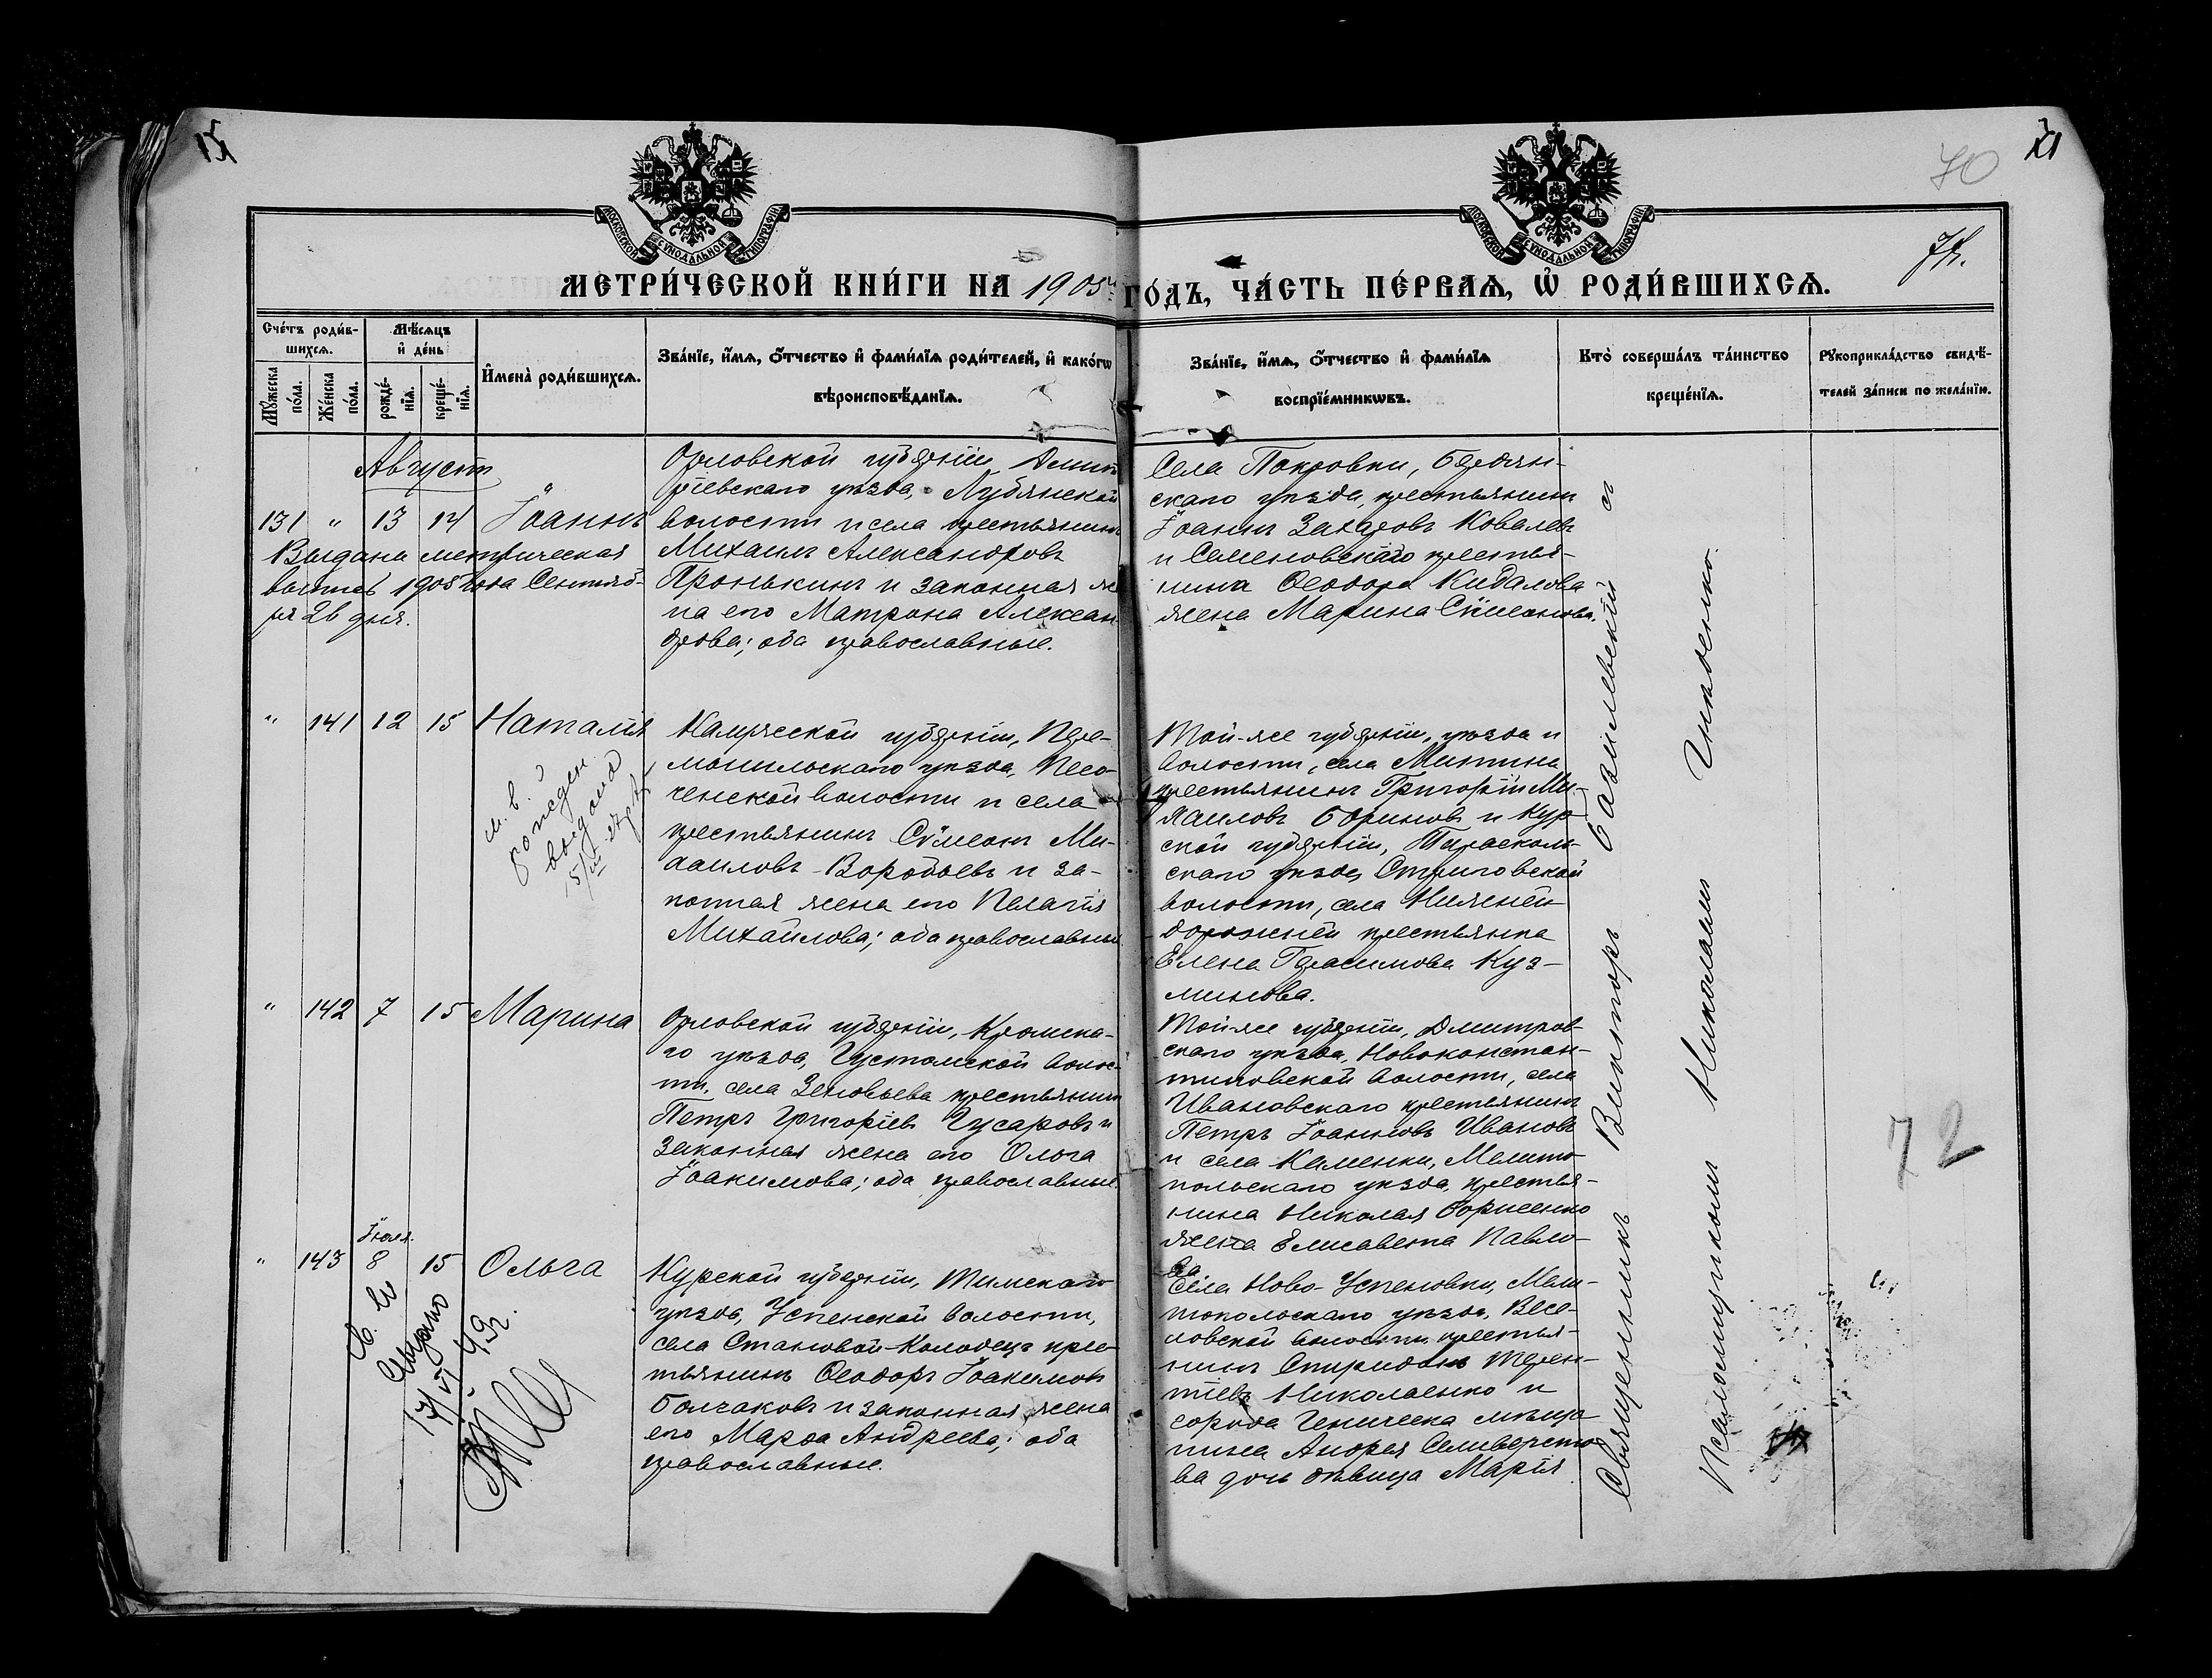 70
72.
МОСКОВСКОЙ СѴНОДАЛЬНОЙ ТИПОГРАФІИ
МОСКОВСКОЙ СѴНОДАЛЬНОЙ ТИПОГРАФІИ
МЕТРИ́ЧЕСКОЙ КНИ́ГИ НА 1905й ГО́ДЪ, ЧА́СТЬ ПЕ́РВАѦ, Ѡ҆ РОДИ́ВШИХСѦ.
Сче́тъ роди́в-
шихсѧ.
Мꙋ́жеска по́ла.
Же́нска по́ла.
Мѣ́сѧцъ
и҆ де́нь
рожде́-
нїѧ.
креще́-
нїѧ.
И҆мена̀ роди́вшихсѧ.
Зва́нїе, и҆́мѧ, ѻ҆́тчество и҆ фами́лїѧ роди́телей, и҆ како́гѡ
вѣроисповѣ́данїѧ.
Зва́нїе, и҆́мѧ, ѻ҆́тчество и҆ фами́лїѧ
воспрїе́мникѡвъ.
Кто̀ соверша́лъ та́инство
креще́нїѧ.
Рꙋкоприкла́дство свидѣ́-
телей за́писи по жела́нїю.
Августъ
131 " 13 14 Іоаннъ
Выдана метрическая
выпись 1905 года Сентяб-
ря 26 дня.
Орловской губерніи, Дмит
ріевскаго уѣзда, Лубянской
волости и села крестьянинъ
Михаилъ Александровъ
Пронькинъ и законная же
на его Матрона Алексан
дрова; оба православные.
Села Покровки, Бердян-
скаго уѣзда, крестьянинъ
Іоаннъ Захаровъ Ковалевъ
и Семеновскаго крестья-
нина Ѳеодора Кидалова
жена Марина Сѵмеонова.
" 141 12 15 Наталія
м. в.
рожден.
выдана
Калужской губерніи, Пере-
мышльскаго уѣзда, Песо-
ченской волости и села
крестьянинъ Сѵмеонъ Ми-
хаиловъ Воробьевъ и за-
конная жена его Пелагія
Михайлова; оба православные
Той-же губерніи, уѣзда и
волости, села Митина
крестьянинъ Григорій Ми-
хаиловъ Бориновъ и Кур-
ской губерніи,
скаго уѣзда, Стриговской
волости, села Нижней
дорожней крестьянка
Елена Герасимова Куз-
минова.
" 142 7 15 Марина
Орловской губерніи, Кромска-
го уѣзда, Густомской волос-
ти, села Зиновьева крестьянинъ
Петръ Григоріевъ Гусаровъ и
законная жена его Ольга
Іоакимова; оба православные.
Той-же губерніи, Дмитров-
скаго уѣзда, Новоконстан-
тиновской волости, села
Ивановскаго крестьянинъ
Петръ Іоанновъ Ивановъ
и села Каменки, Мелито
польскаго уѣзда, крестья-
нина Николая Борисенко
жена Елисавета Павло-
ва.
72
Іюля.
" 143 8 15 Ольга
Св. во
выдано
17/VI 49г.
Курской губерніи, Тимскаго
уѣзда, Успенской волости,
села Становой-Колодезь крес-
тьянинъ Ѳеодоръ Іоакимовъ
Болчаковъ и законная жена
его Марѳа Андреева; оба
православные.
Села Ново-Успеновки, Мели-
топольскаго уѣзда, Весе-
ловской волости крестья-
нинъ Спиридонъ Терен-
тіевъ Николаенко и
города Геническа мѣща-
нина Андрея Селиверсто-
ва дочь дѣвица Марія.
Священникъ Викторъ Базилевскій съ
Псаломщикомъ Николаемъ